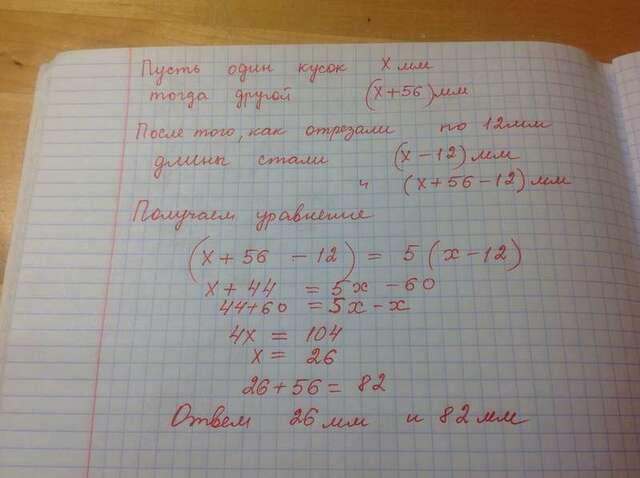 Пусть один кусок x мм
тогда другой (x+56) мм
После того, как отрезали по 12 мм
длины стали (x-12) мм
и (x+56-12) мм
Получаем уравнение
(x+56 -12) = 5(x-12)
x+44 = 5x-60
44+60 = 5x-x
4x = 104
x = 26
26+56 = 82
Ответ 26 мм и 82 мм